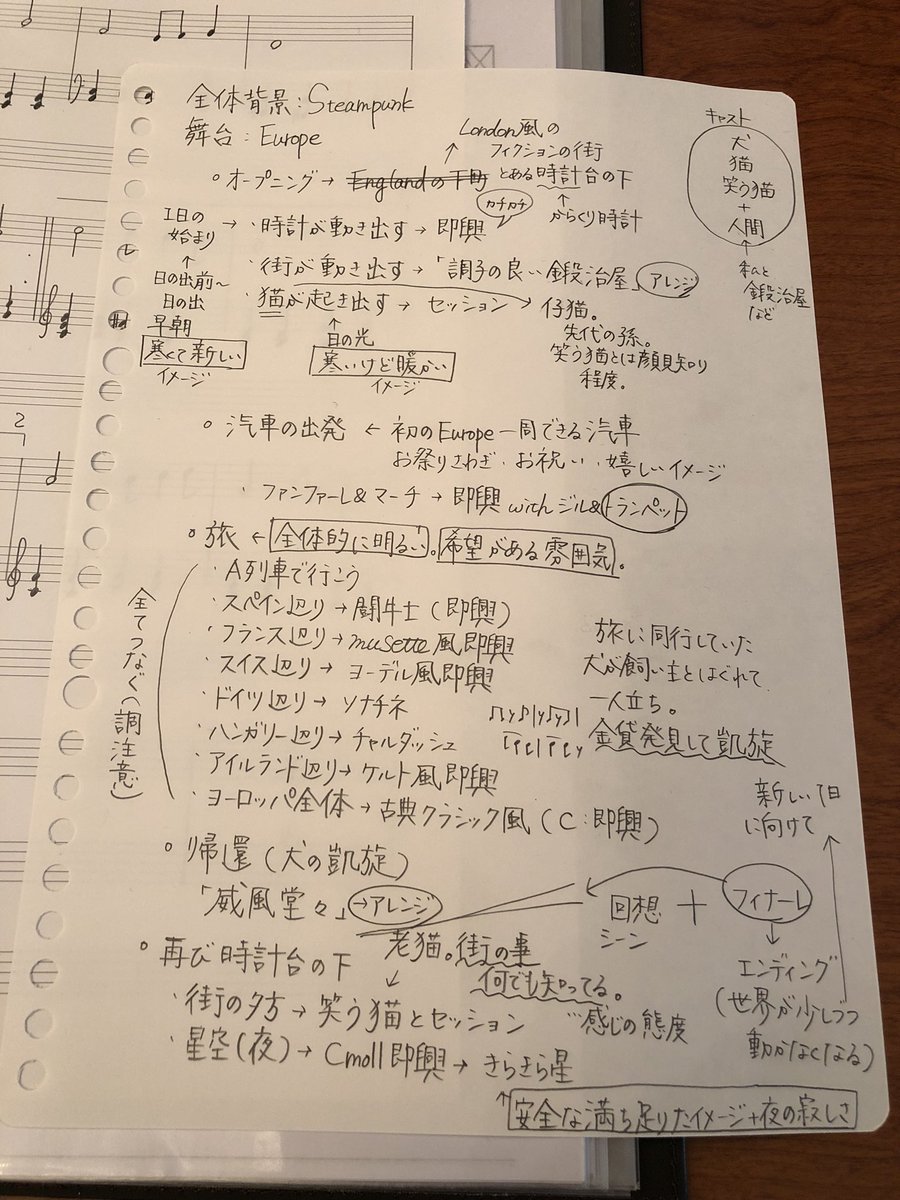 全体背景：Steampunk
舞台：Europe
London風の
フィクションの街
○オープニング→Englandの下町 とある時計台の下
カチカチ
からくり時計
1日の
始まり
→・時計が動き出す→即興
・街が動き出す→「調子の良い鍛冶屋」アレンジ
・猫が起き出す→セッション→仔猫。
先代の孫。
笑う猫とは顔見知り
程度。
日の出前〜
日の出
早朝
寒くて新しい
イメージ
日の光
寒いけど暖かい
イメージ
キャスト
犬
猫
笑う猫
+
人間
私と
鍛冶屋
など
○汽車の出発←初のEurope一周できる汽車
お祭りさわぎ・お祝い・嬉しいイメージ
・ファンファーレ&マーチ→即興 with ジル&トランペット
○旅←全体的に明るい。希望がある雰囲気。
・A列車で行こう
・スペイン辺り→闘牛士（即興）
・フランス辺り→musette風即興
・スイス辺り→ヨーデル風即興
・ドイツ辺り→ソナチネ
・ハンガリー辺り→チャルダッシュ
・アイルランド辺り→ケルト風即興
・ヨーロッパ全体→古典クラシック風（C：即興）
全てつなぐ（調注意）
旅に同行していた
犬が飼い主とはぐれて
一人立ち。
金貨発見して凱旋
○帰還（犬の凱旋）
「威風堂々」→アレンジ
回想
シーン
+
フィナーレ
新しい1日
に向けて
エンディング
（世界が少しづつ
動かなくなる）
○再び時計台の下
老猫。街の事
何でも知ってる。
…感じの態度
・街の夕方→笑う猫とセッション
・星空（夜）→Cmoll即興→きらきら星
安全な満ち足りたイメージ+夜の寂しさ
2